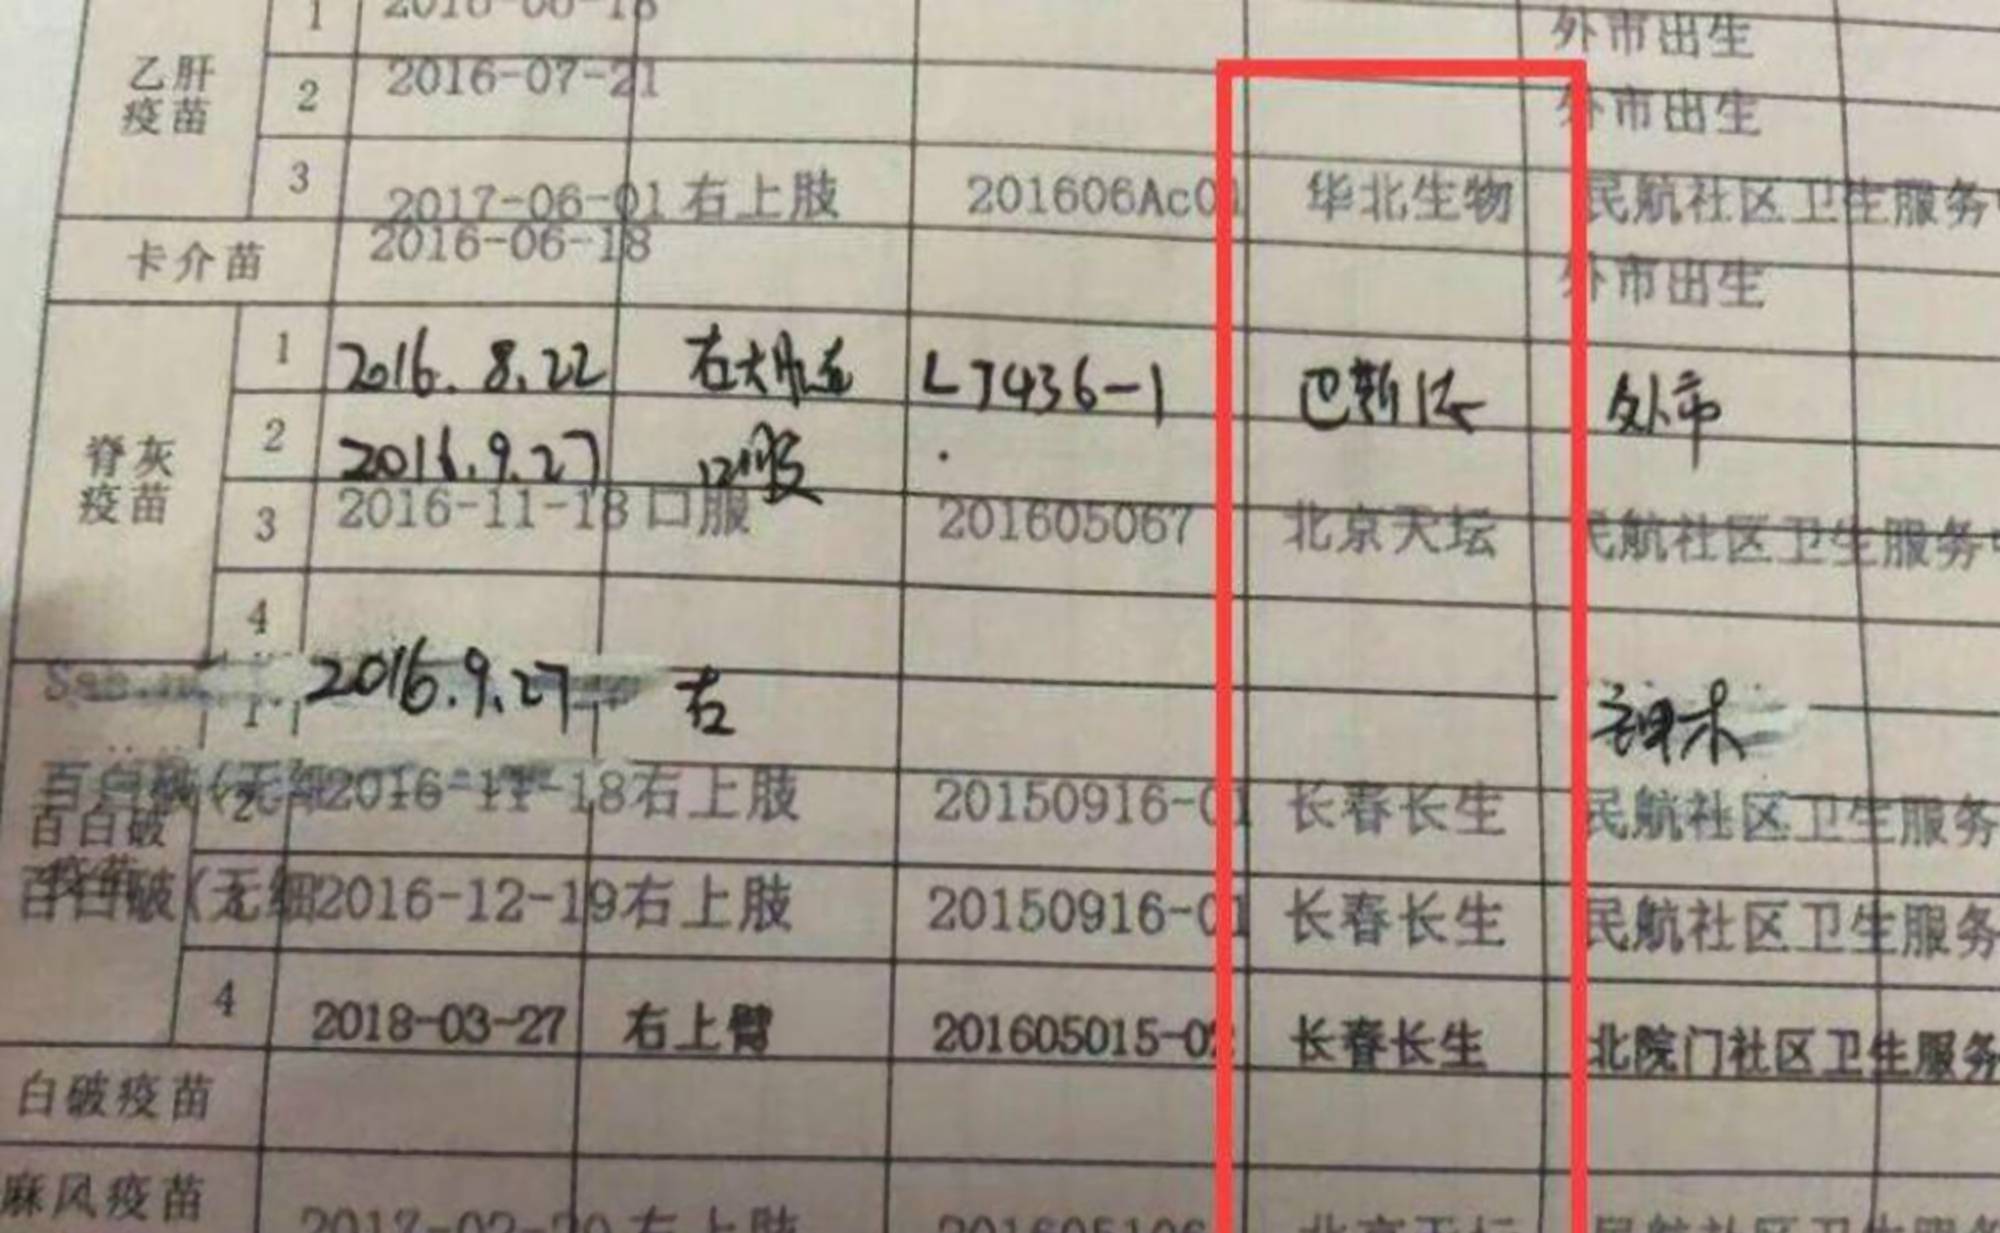 1 2016-06-18 外市出生
乙肝疫苗 2 2016-07-21 外市出生
3 2017-06-01 右上肢 201606Ac01 华北生物 民航社区卫生服务
卡介苗 2016-06-18 外市出生
1 2016.8.22 右大腿 L7436-1 巴斯德 外市
脊灰疫苗 2 2016.9.27 口服
3 2016-11-18 口服 201605067 北京天坛 民航社区卫生服务
4
1 2016.9.27 右 神木
百白破(无细 2 2016-11-18 右上肢 20150916-01 长春长生 民航社区卫生服务
百白破疫苗
百白破(无细 2016-12-19 右上肢 20150916-01 长春长生 民航社区卫生服务
4 2018-03-27 右上臂 201605015-02 长春长生 北院门社区卫生服务
白破疫苗
麻风疫苗 右上肢 北京天坛 民航社区卫生服务